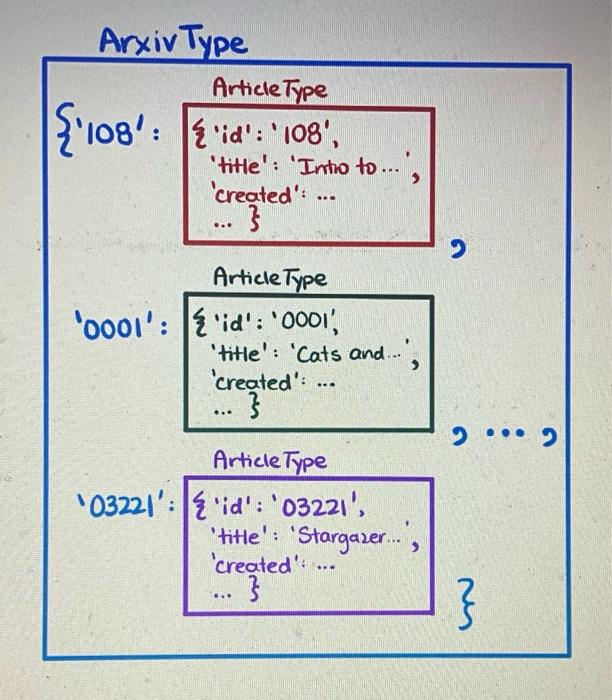 ArxivType
ArticleType
{'108': {'id': '108',
'title': 'Intro to ...',
'created': ...
... }
,
ArticleType
'0001': {'id': '0001',
'title': 'Cats and...',
'created': ...
... }
, ... ,
ArticleType
'03221': {'id': '03221',
'title': 'Stargazer...',
'created': ...
... }
}